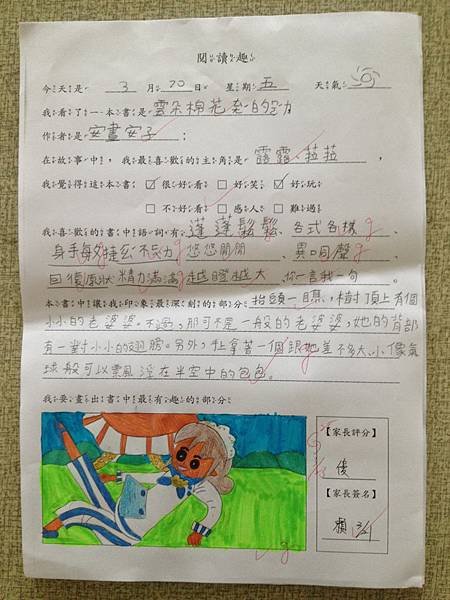 閱讀趣
今天是 3 月 20 日 星期 五 天氣
我看了一本書是 雲朵棉花糖的魔力
作者是 安晝安子
在故事中，我最喜歡的主角是 露露菈菈，
我覺得這本書 ☑很好看 □好笑 ☑好玩
□不好看 □感人 □難過
我喜歡的書中語詞有 蓬蓬鬆鬆、各式各樣
身手 悠悠閒閒、異口同聲
回復原狀 精力滿滿 越瞪越大、你一言我一句。
本書中讓我印象最深刻的部分：抬頭一瞧，樹頂上有個
小小的老婆婆。不過，那可不是一般的老婆婆，她的背部
有一對小小的翅膀。另外，她拿著一個跟她差不多大小像氣
球般可以飄浮在半空中的包包。
我要畫出書中最有趣的部分：
【家長評分】
優
【家長簽名】
賴 3/21